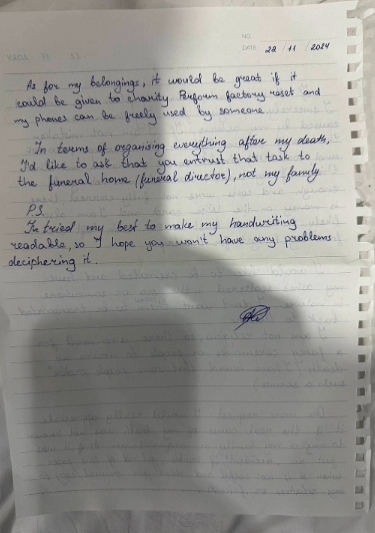 DATE 22 / 11 / 2024
As for my belongings, it would be great if it
could be given to charity. Perform factory reset and
my phones can be freely used by someone
In terms of organising everything after my death,
I'd like to ask that you entrust that task to
the funeral home (funeral director), not my family
P.S.
I'm tried my best to make my handwriting
readable, so I hope you won't have any problems
deciphering it.